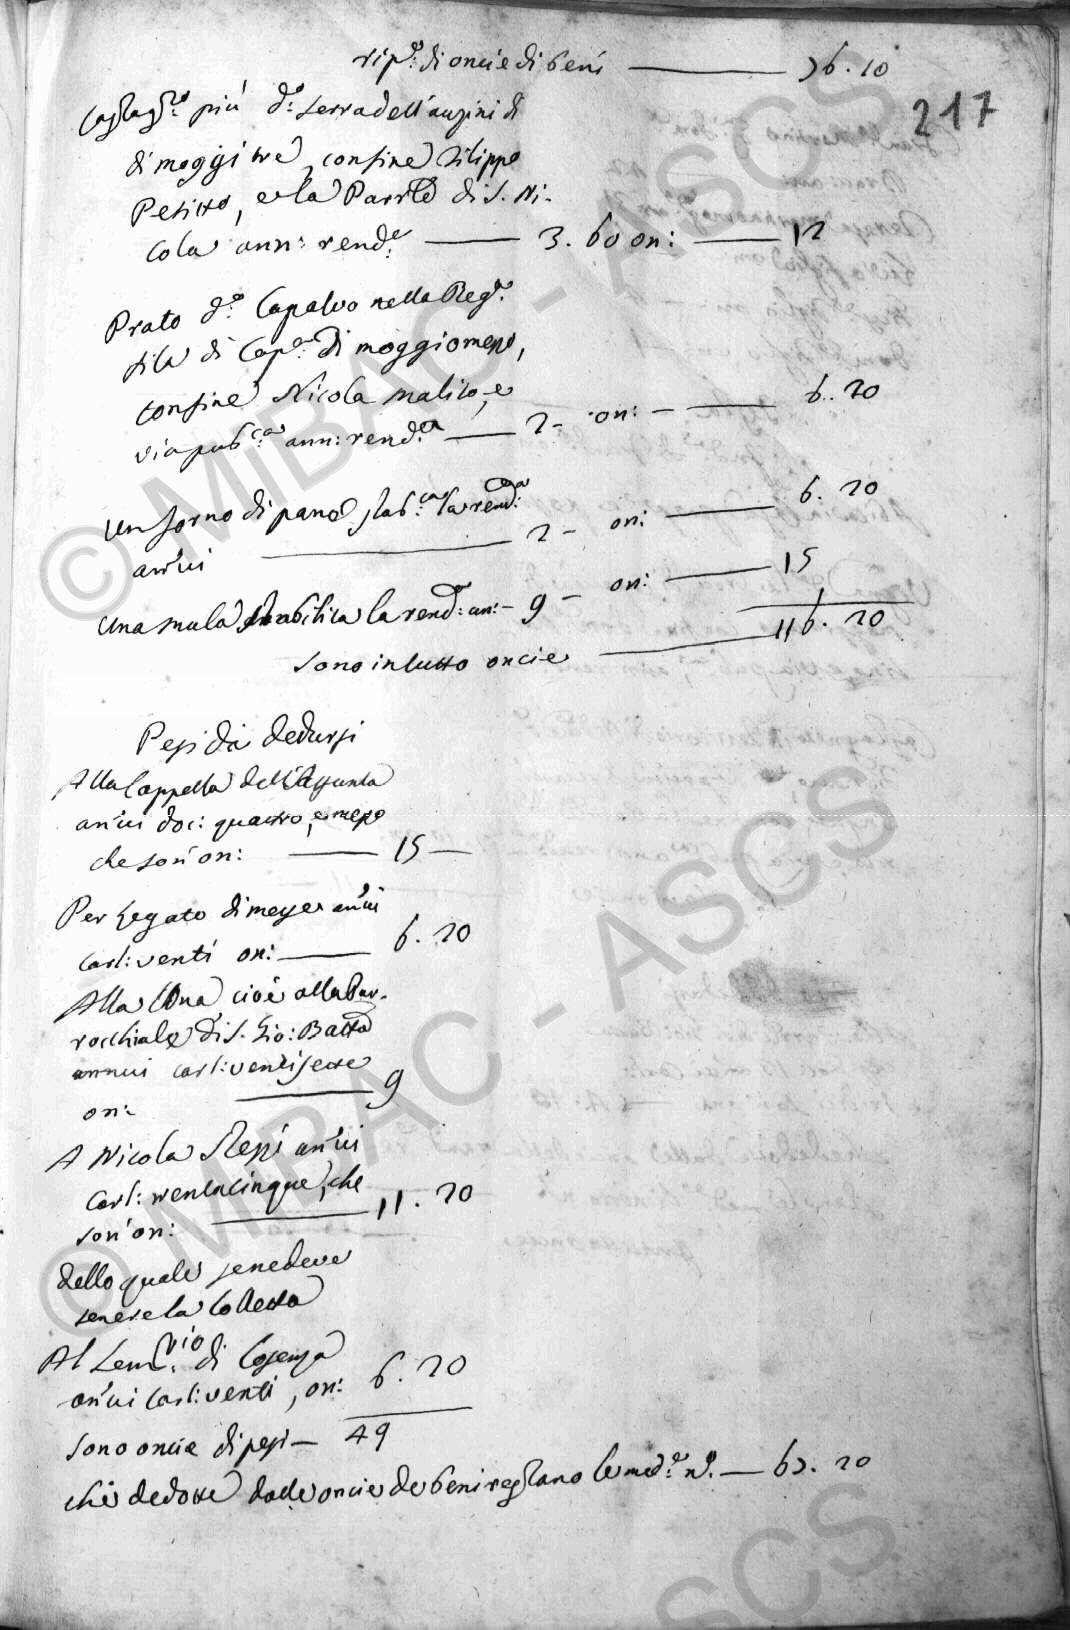 rip.to: di oncie di beni — 76. 10
217
Castag.to: più d.o: Serra dell'auzini di
di moggi tre, confine Filippo
Petitto, e la Parr.le di S. Ni-
cola ann: rend.e — 3. 60 on: — 12
Prato d.o: Capalvo nella Reg.
Sila di Cap.tà: di moggio mezo,
confine Nicola Malito, e
via pub.ca: ann: rend.a — 2 - on: — 6. 20
Un forno di pane, stab.ta: la rend.a
an'ui — 2 - on: — 6. 20
Una mula stabilita la rend: an: - 9 - on: — 15
Sono in tutto oncie — 116. 20
Pesi da dedursi
Alla Cappella dell'Assunta
an'ui doc: quattro, e mezo
che son' on: — 15 —
Per Legato di messe an'ui
carl: venti on: — 6. 20
Alla cioè alla Par-
rocchiale di S. Gio: Batta
annui carl: ventisette
on: — 9
A Nicola an'ui
Carl: trentacinque, che
son' on: — 11. 20
dello quale se ne deve
tenere la Colletta
Al Sem.rio: di Cosenza
an'ui Carl: venti, on: 6. 20
Sono oncie di pesi — 49
che dedotte dalle oncie de beni restano le med.e: n.o — 67. 20
© MIBAC - ASCS
© MIBAC - ASCS
SCS